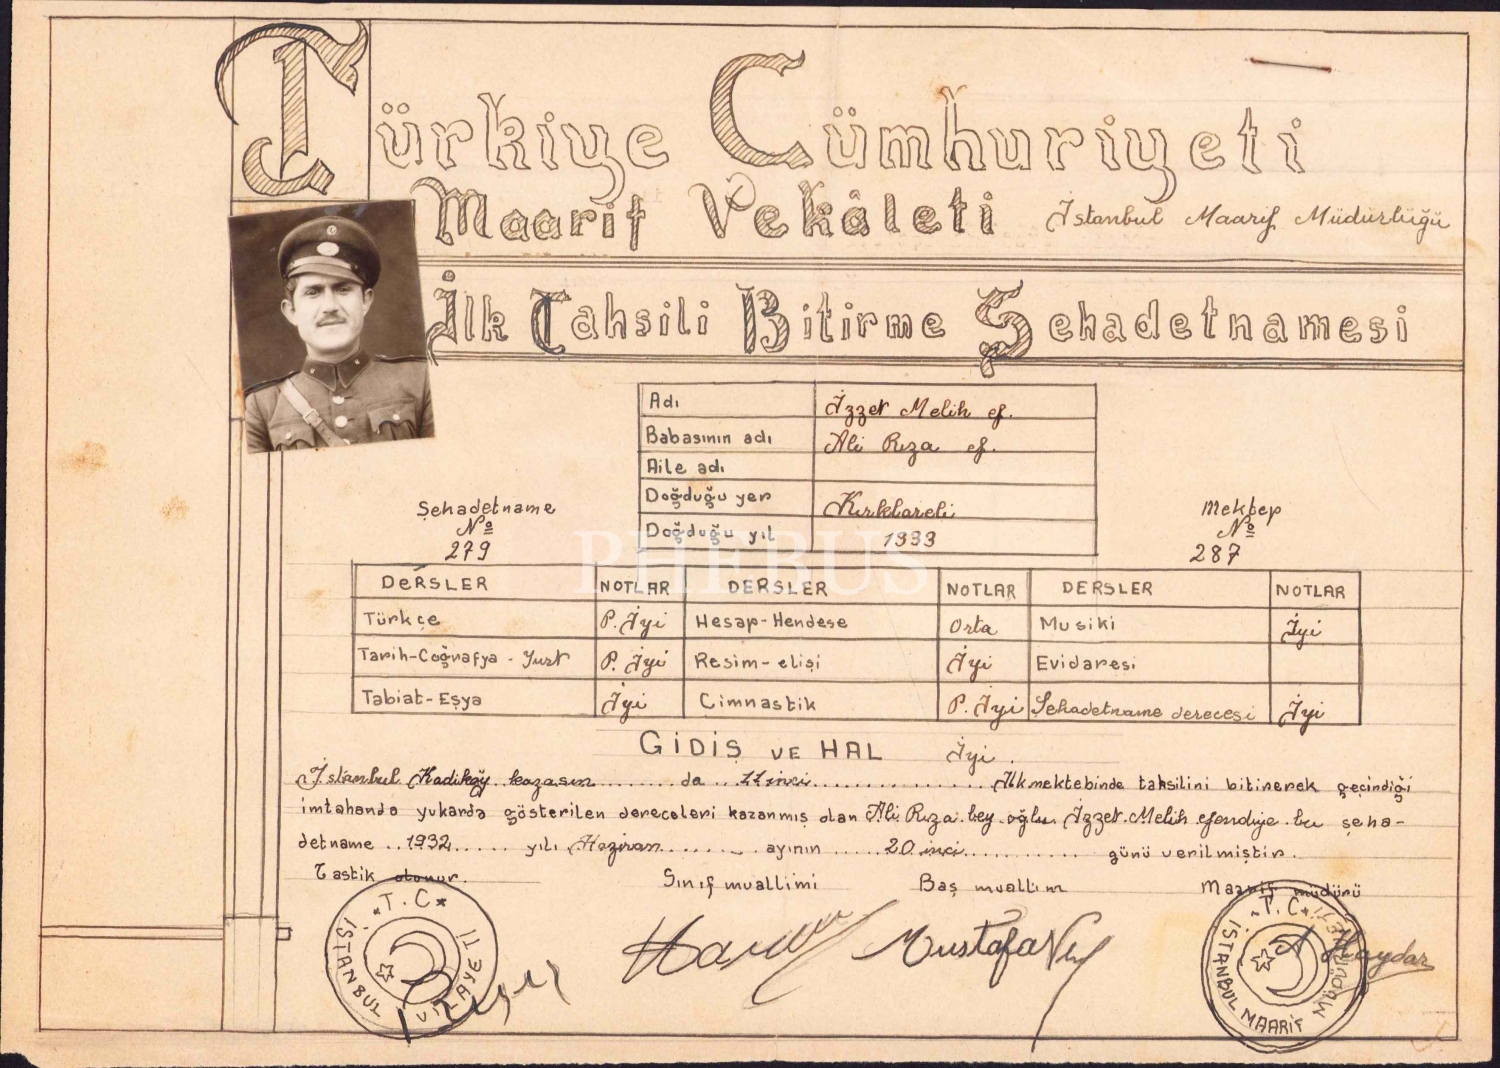 Türkiye Cümhuriyeti
Maarif Vekâleti İstanbul Maarif Müdürlüğü
İlk Tahsili Bitirme Şehadetnamesi
Adı İzzet Melih ef.
Babasının adı Ali Rıza ef.
Aile adı
Doğduğu yer Kırklareli
Doğduğu yıl 1333
Şehadetname
No
279
Mektep
No
287
PHEBUS
DERSLER NOTLAR DERSLER NOTLAR DERSLER NOTLAR
Türkçe P. İyi Hesap-Hendese Orta Musiki İyi
Tarih-Coğrafya - Yurt P. İyi Resim-elişi İyi Evidaresi
Tabiat-Eşya İyi Cimnastik P. İyi Şehadetname derecesi İyi
GİDİŞ VE HAL İyi.
İstanbul Kadıköy kazasın....... da .. 11 inci................ İlkmektebinde tahsilini bitirerek geçindiği
imtahanda yukarda gösterilen dereceleri kazanmış olan Ali Rıza bey oğlu İzzet Melih efendiye bu şeha-
detname ..1932...... yılı Haziran........ ayının .... 20 inci.......... günü verilmiştir.
Tastik olunur. Sınıf muallimi Baş muallim Maarif müdürü
T.C. İSTANBUL VİLAYETİ
Mustafa
T.C. İSTANBUL MAARİF MÜDÜRİYETİ
A Haydar